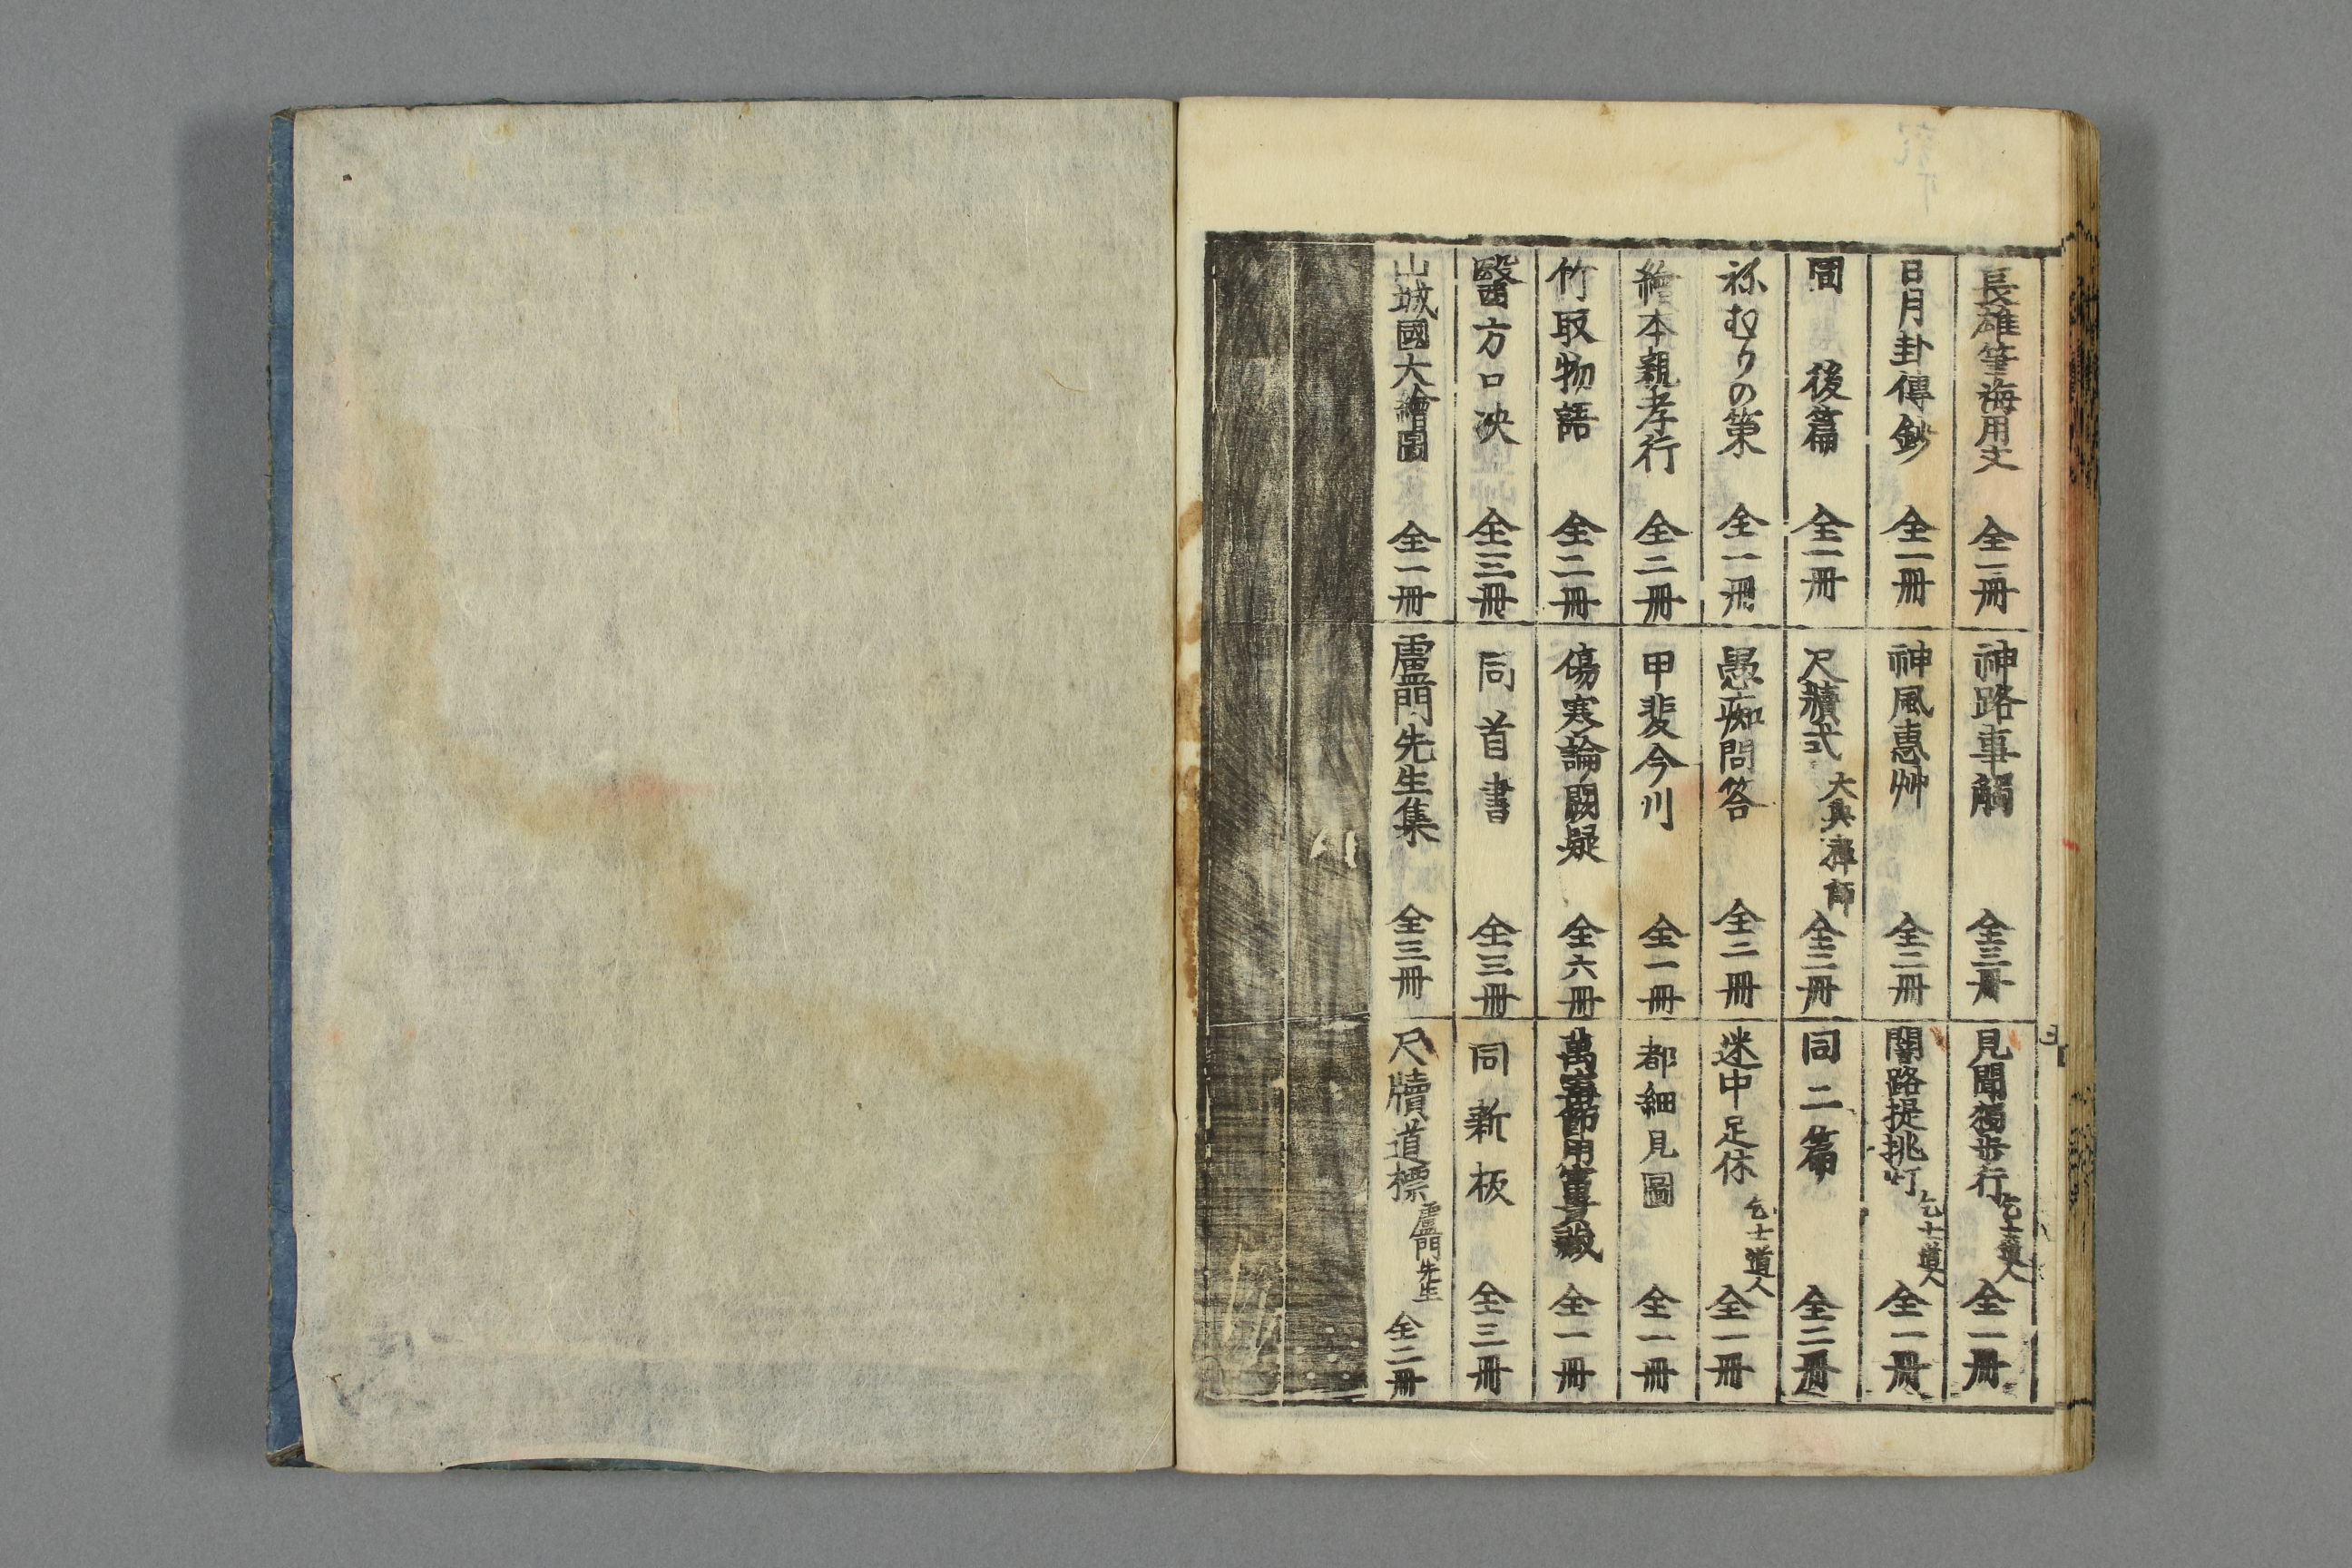 長雄筆海用文 全一冊
神路事觸 全三冊
見聞獨歩行 乞士道人 全一冊
日月卦傳鈔 全一冊
神風惠艸 全二冊
闇路提挑灯 乞士道人 全一冊
同 後篇 全一冊
尺牘式 大典禅師 全二冊
同二篇 全二冊
祢むりの策 全一冊
愚痴問答 全二冊
迷中足休 乞士道人 全一冊
繪本親孝行 全二冊
甲斐今川 全一冊
都細見圖 全一冊
竹取物語 全二冊
傷寒論闕疑 全六冊
萬海節用寳蔵 全一冊
醫方口决 全三冊
同首書 全三冊
同新板 全三冊
山城國大繪圖 全一冊
盧門先生集 全三冊
尺牘道標 盧門先生 全二冊